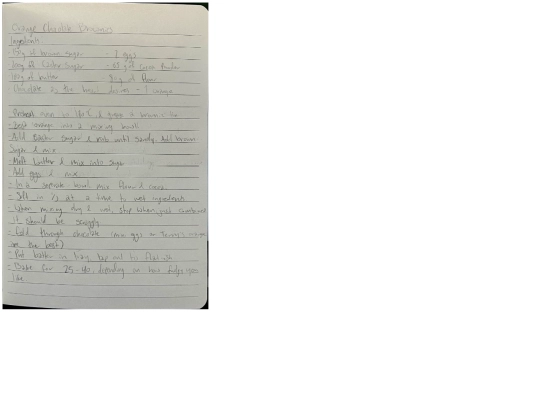 Orange Chocolate Brownies
Ingredients
of brown sugar - 2 eggs
of Caster Sugar - of cocoa
of butter of flour
Chocolate as the heart desires - 1 orange
Preheat oven to & grease a brownie tin
- Zest orange into a mixing bowl
- Add caster sugar & rub until sandy. Add brown
sugar & mix
- Melt butter & mix into sugar
- Add eggs & mix
- In a separate bowl mix flour & cocoa
- Sift in 1/3 at a time to wet ingredients
- When mixing dry & wet, stop when just combined
it should be
- Fold through chocolate (mini eggs or Terry's
are the best)
- Put batter in tray, tap out to
- Bake for 25-40, depending on how you
like